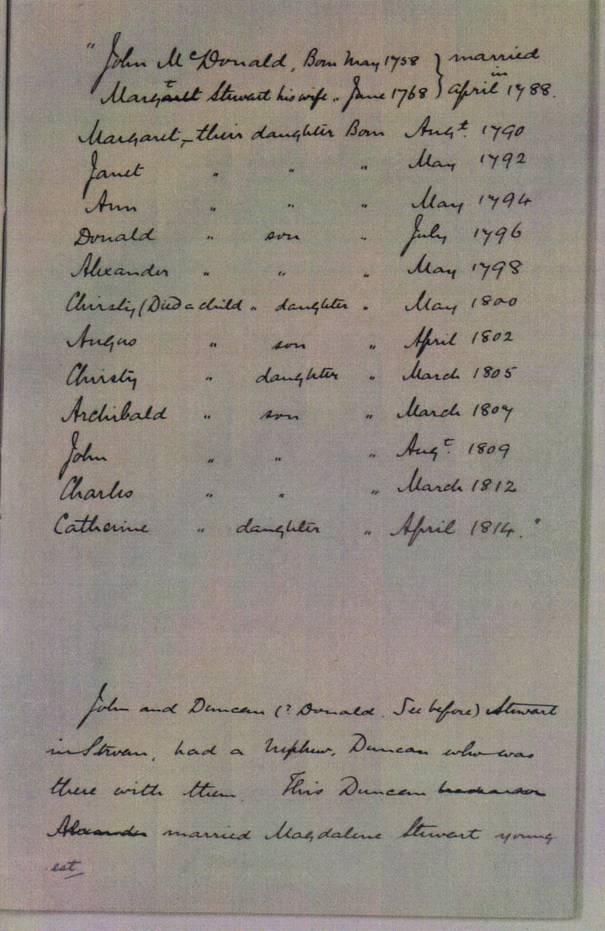 " John McDonald, Born May 1758 } married
Margt Stewart his wife „ June 1768 } in April 1788.
Margaret, their daughter Born Augt. 1790
Janet " " " May 1792
Ann " " " May 1794
Donald " son " July 1796
Alexander " " " May 1798
Chirsty (Died a child " daughter " May 1800
Angus " son " April 1802
Chirsty " daughter " March 1805
Archibald " son " March 1807
John " " " Augt. 1809
Charles " " " March 1812
Catherine " daughter " April 1814."
John and Duncan (? Donald. See before) Stewart
in Strvan, had a Nephew, Duncan who was
there with them. This Duncan
Alexander married Magdalene Stewart young
est